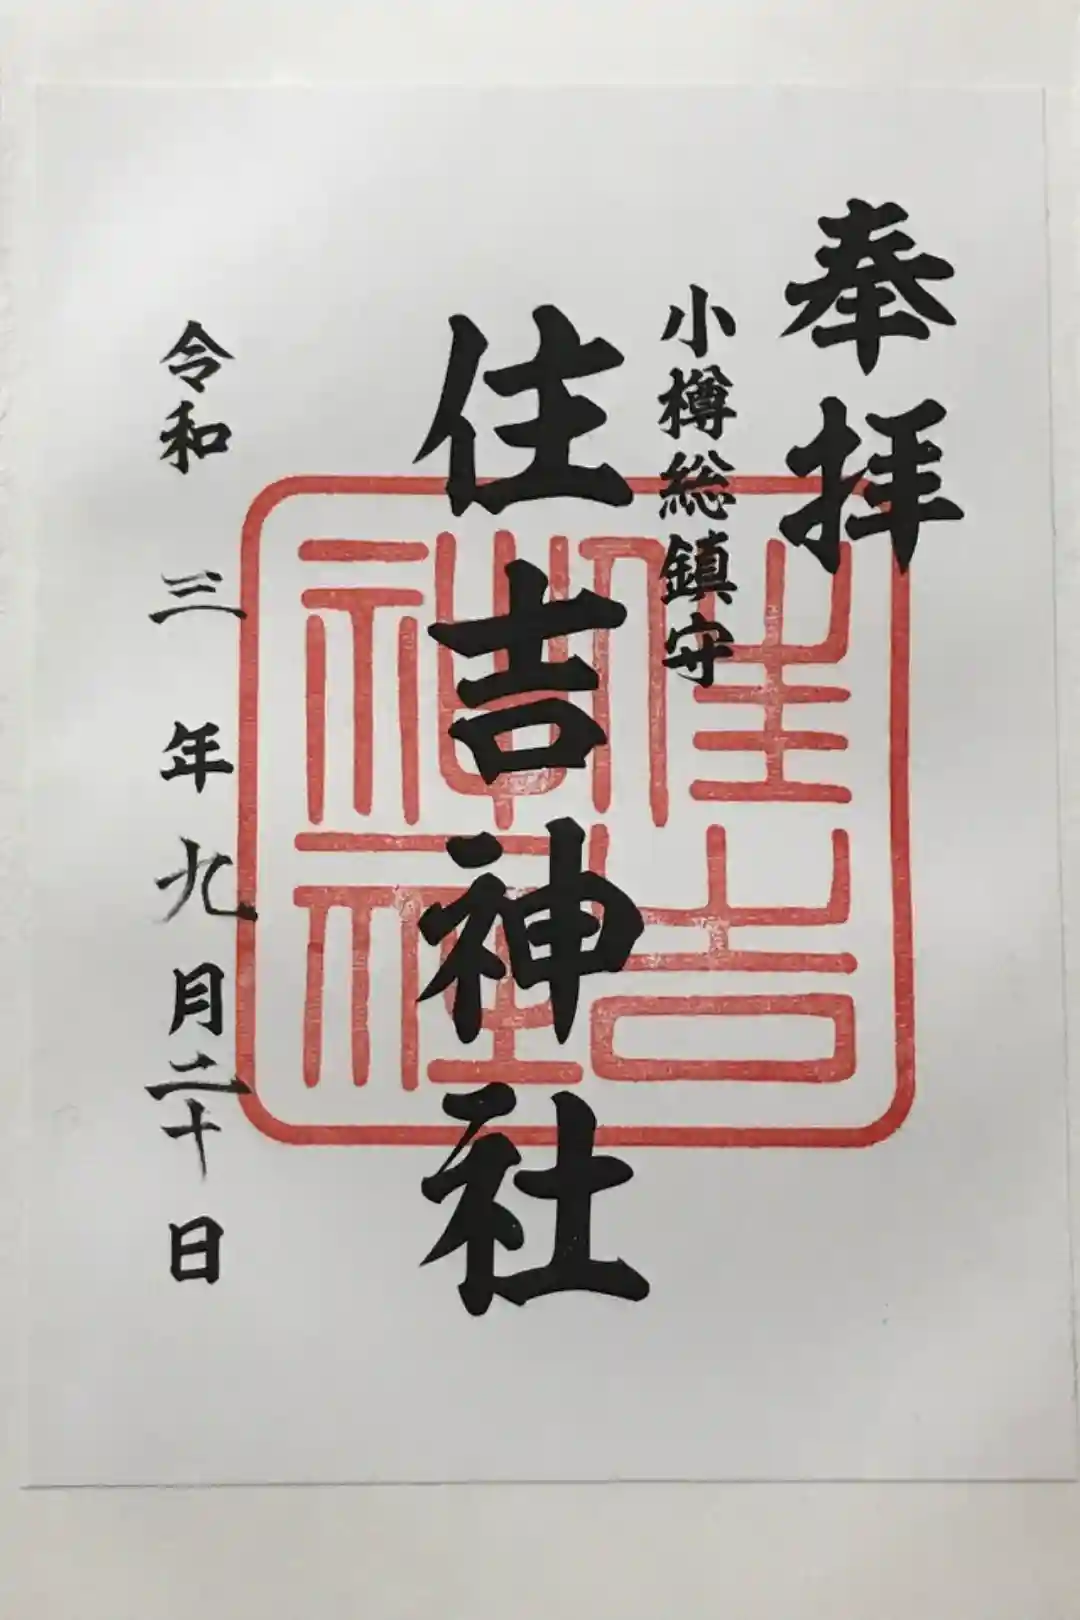 奉拝
小樽総鎮守
住吉神社
令和三年九月二十日
住吉
神社